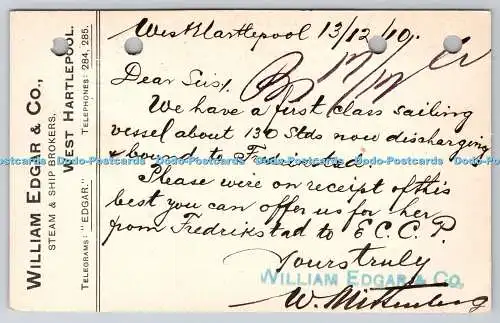 WILLIAM EDGAR & Co.,
STEAM & SHIP BROKERS,
WEST HARTLEPOOL.
TELEGRAMS: "EDGAR."
TELEPHONES: 284, 285.
West Hartlepool 13/12/10.
Dear Sirs,
We have a first class sailing
vessel about 130 Stds now discharging
& bound to
Please were on receipt of this
best you can offer us for her
from Fredrikstad to E.C.C.P.
Yours truly
WILLIAM EDGAR & Co.
W.
Dods Postcards Dods Postcards Dods Postcards Dods Postcards Dods Postcards Dods Postcards